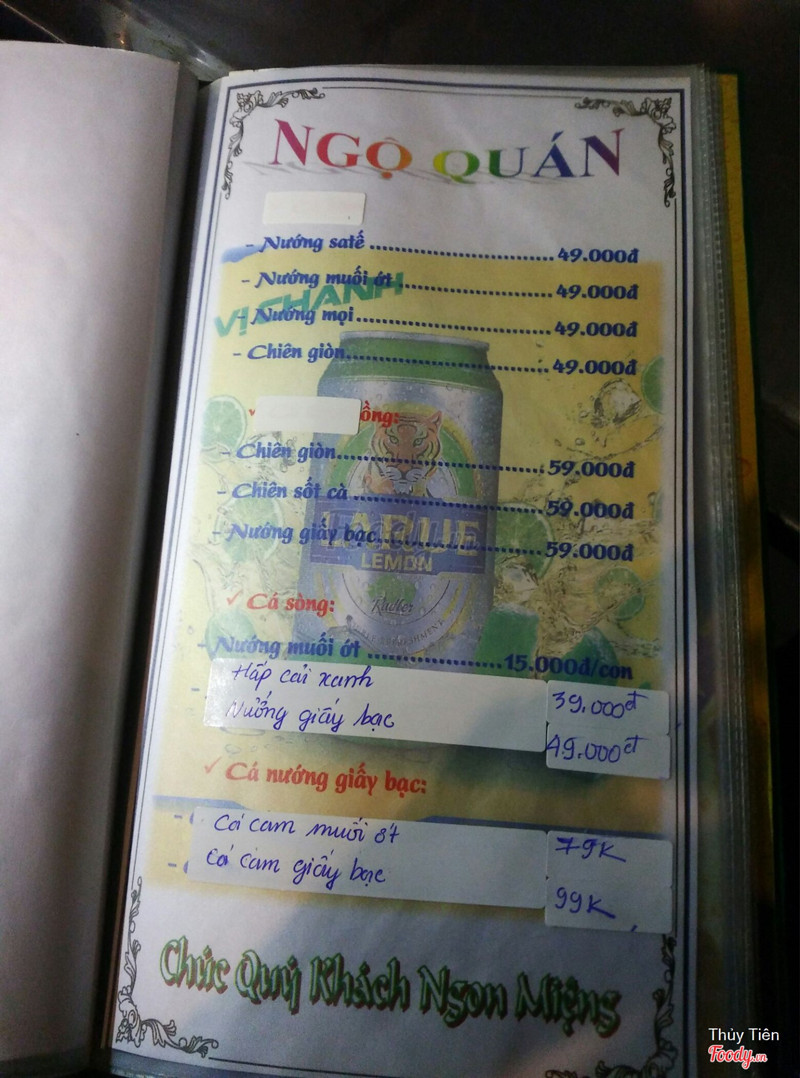 NGỘ QUÁN
- Nướng satế ........ 49.000đ
- Nướng muối ớt ........ 49.000đ
VỊ CHANH
- Nướng mọi ........ 49.000đ
- Chiên giòn ........ 49.000đ
✓ ồng:
- Chiên giòn ........ 59.000đ
- Chiên sốt cà ........ 59.000đ
- Nướng giấy bạc ........ 59.000đ
LARUE
LEMON
Radler
✓ Cá sòng:
- Nướng muối ớt ........ 15.000đ/con
Hấp cải xanh 39.000đ
Nướng giấy bạc 49.000đ
✓ Cá nướng giấy bạc:
Cá cam muối ớt 79K
Cá cam giấy bạc 99K
Chúc Quý Khách Ngon Miệng
Thủy Tiên
Foody.vn